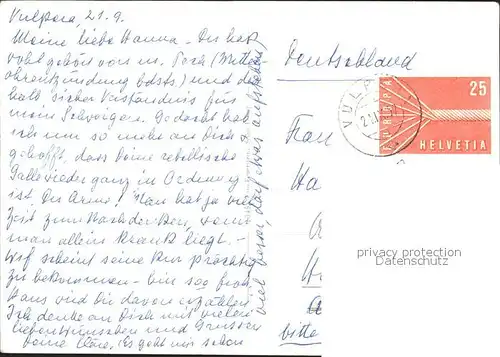 Vulpera, 21.9.
Meine liebe Hanna - Du hast
wohl gehört von m. Pech (Mittel-
ohrenzündung bdsts) und des-
halb sicher Verständnis für
mein Schweigen. Gedacht hab
ich um so mehr an Dich u
gehofft, dass Deine rebellische
Galle wieder ganz in Ordnung
ist. Du Arme! Man hat ja viel
Zeit zum Nachdenken, wenn
man allein krank liegt. -
scheint seine Kur prächtig
zu bekommen - bin so froh
Hans wird Dir davon erzählen
Ich denke an Dich mit vielen
lieben Wünschen und Grüssen
Deine Es geht mir schon
viel besser, darf etwas aufstehen!
Deutschland
Frau
Ha
bitte
VULP
25
EUROPA
HELVETIA
privacy protection
Datenschutz